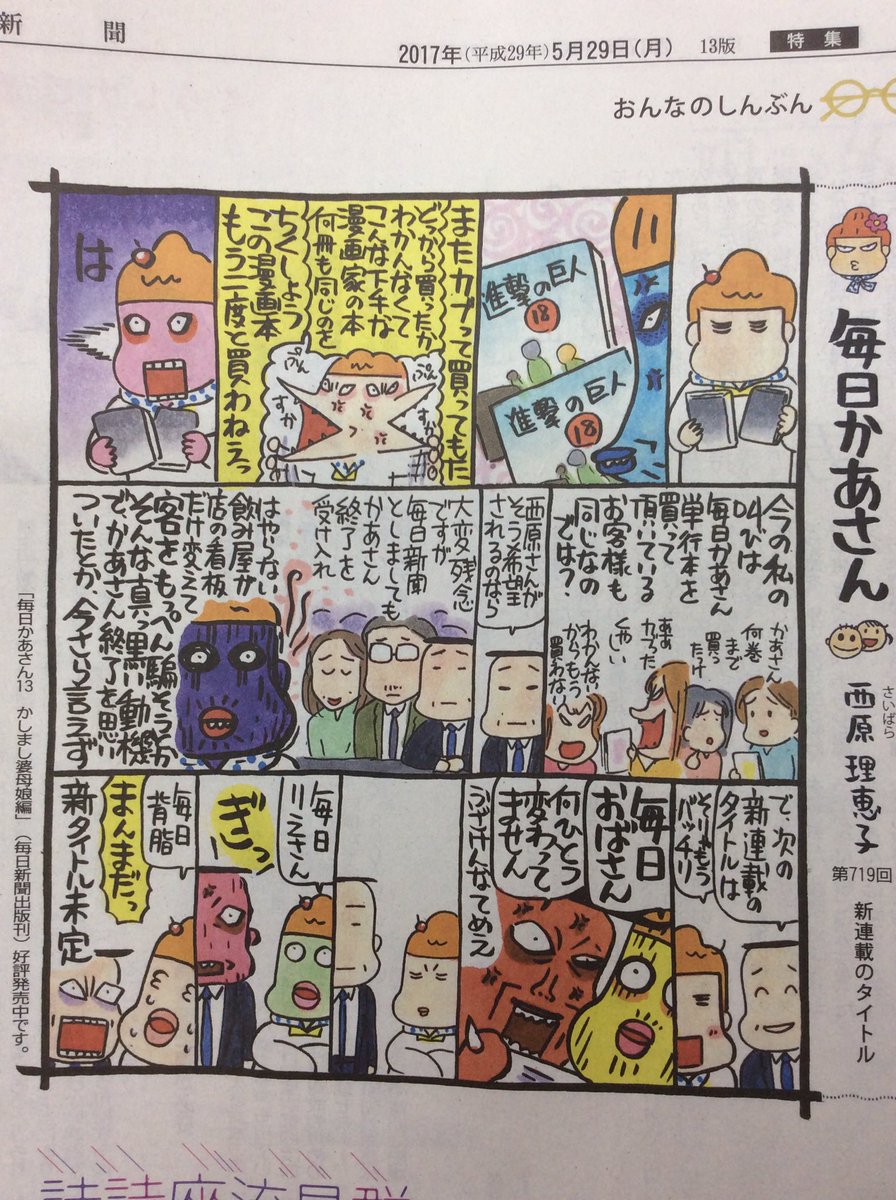 新聞
2017年(平成29年)5月29日(月)
13版
特集
おんなのしんぶん
毎日かあさん
さいばら
西原理恵子
第719回
新連載のタイトル
進撃の巨人
18
進撃の巨人
18
またカブって買ってもた
どっから買ったか
わかんなくて
こんな下手な
漫画家の本
何冊も同じのを
ちくしょう
この漫画本
もう二度と買わねえっ
ぷん
すか
ぷん
すか
は
今の私の
叫びは
毎日かあさん
単行本を
買って
頂いている
お客様も
同じなの
では?
かあさん
何巻
まで
買っ
たっけ
ああ
カブった
くやしい
わかんない
からもう
買わない
西原さんが
そう希望
されるのなら
大変残念
ですが
毎日新聞
としましても
かあさん
終了を
受け入れ
はやらない
飲み屋が
店の看板
だけ変えて
客をもっぺん騙そうか
そんな真っ黒い動機
で、かあさん終了を思い
ついたとか、今さら言えず
で、次の
新連載の
タイトルは
そりゃもう
バッチリ
毎日
おばさん
何ひとつ
変わって
ません
ふざけんなてめえ
毎日
リえさん
ぎっ
毎日
背脂
まんまだっ
新タイトル未定
「毎日かあさん13 かしまし婆母娘編」(毎日新聞出版刊)好評発売中です。